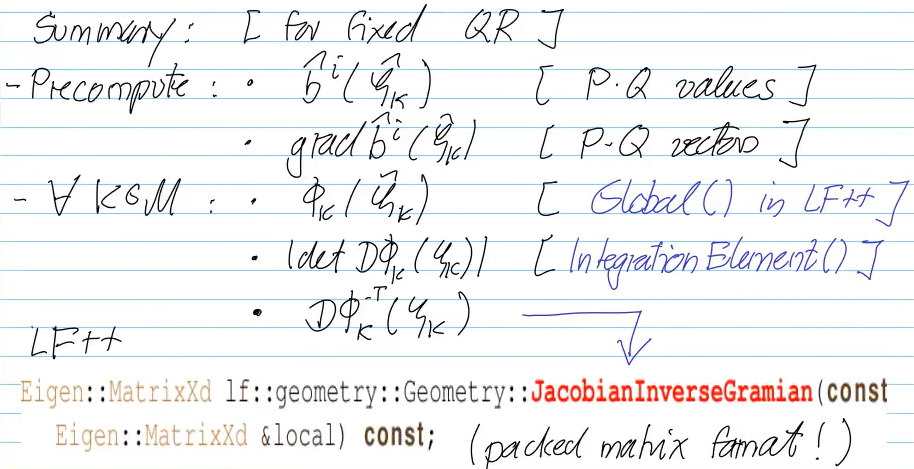 Summary: [ for fixed QR ]
- Precompute: • b̂ⁱ(ζ̂_K) [ P·Q values ]
• grad b̂ⁱ(ζ̂_K) [ P·Q vectors ]
- ∀ K∈M: • Φ_K(ζ̂_K) [ Global() in LF++ ]
• |det DΦ_K(ζ_K)| [ IntegrationElement() ]
• DΦ_K^{-T}(ζ_K)
LF++
Eigen::MatrixXd lf::geometry::Geometry::JacobianInverseGramian(const
Eigen::MatrixXd &local) const; (packed matrix format!)